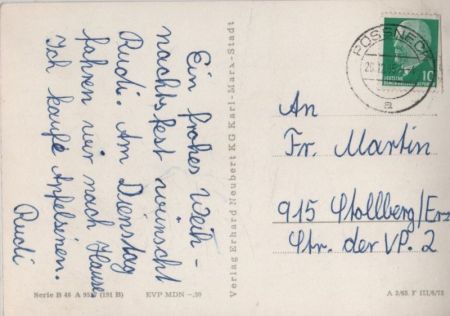 Ein frohes Weih-
nachtsfest wünscht
Rudi. Am Dienstag
fahren wir nach Hause.
Ich kaufe Apfelsinen.
Rudi
Verlag Erhard Neubert KG Karl-Marx-Stadt
PÖSSNECK
a
DEUTSCHE
10
An
Fr. Martin
915 Stollberg/Erz
Str. der VP. 2
Serie B 46 (191 B)
EVP MDN -.20
A 2/65. F III/6/73